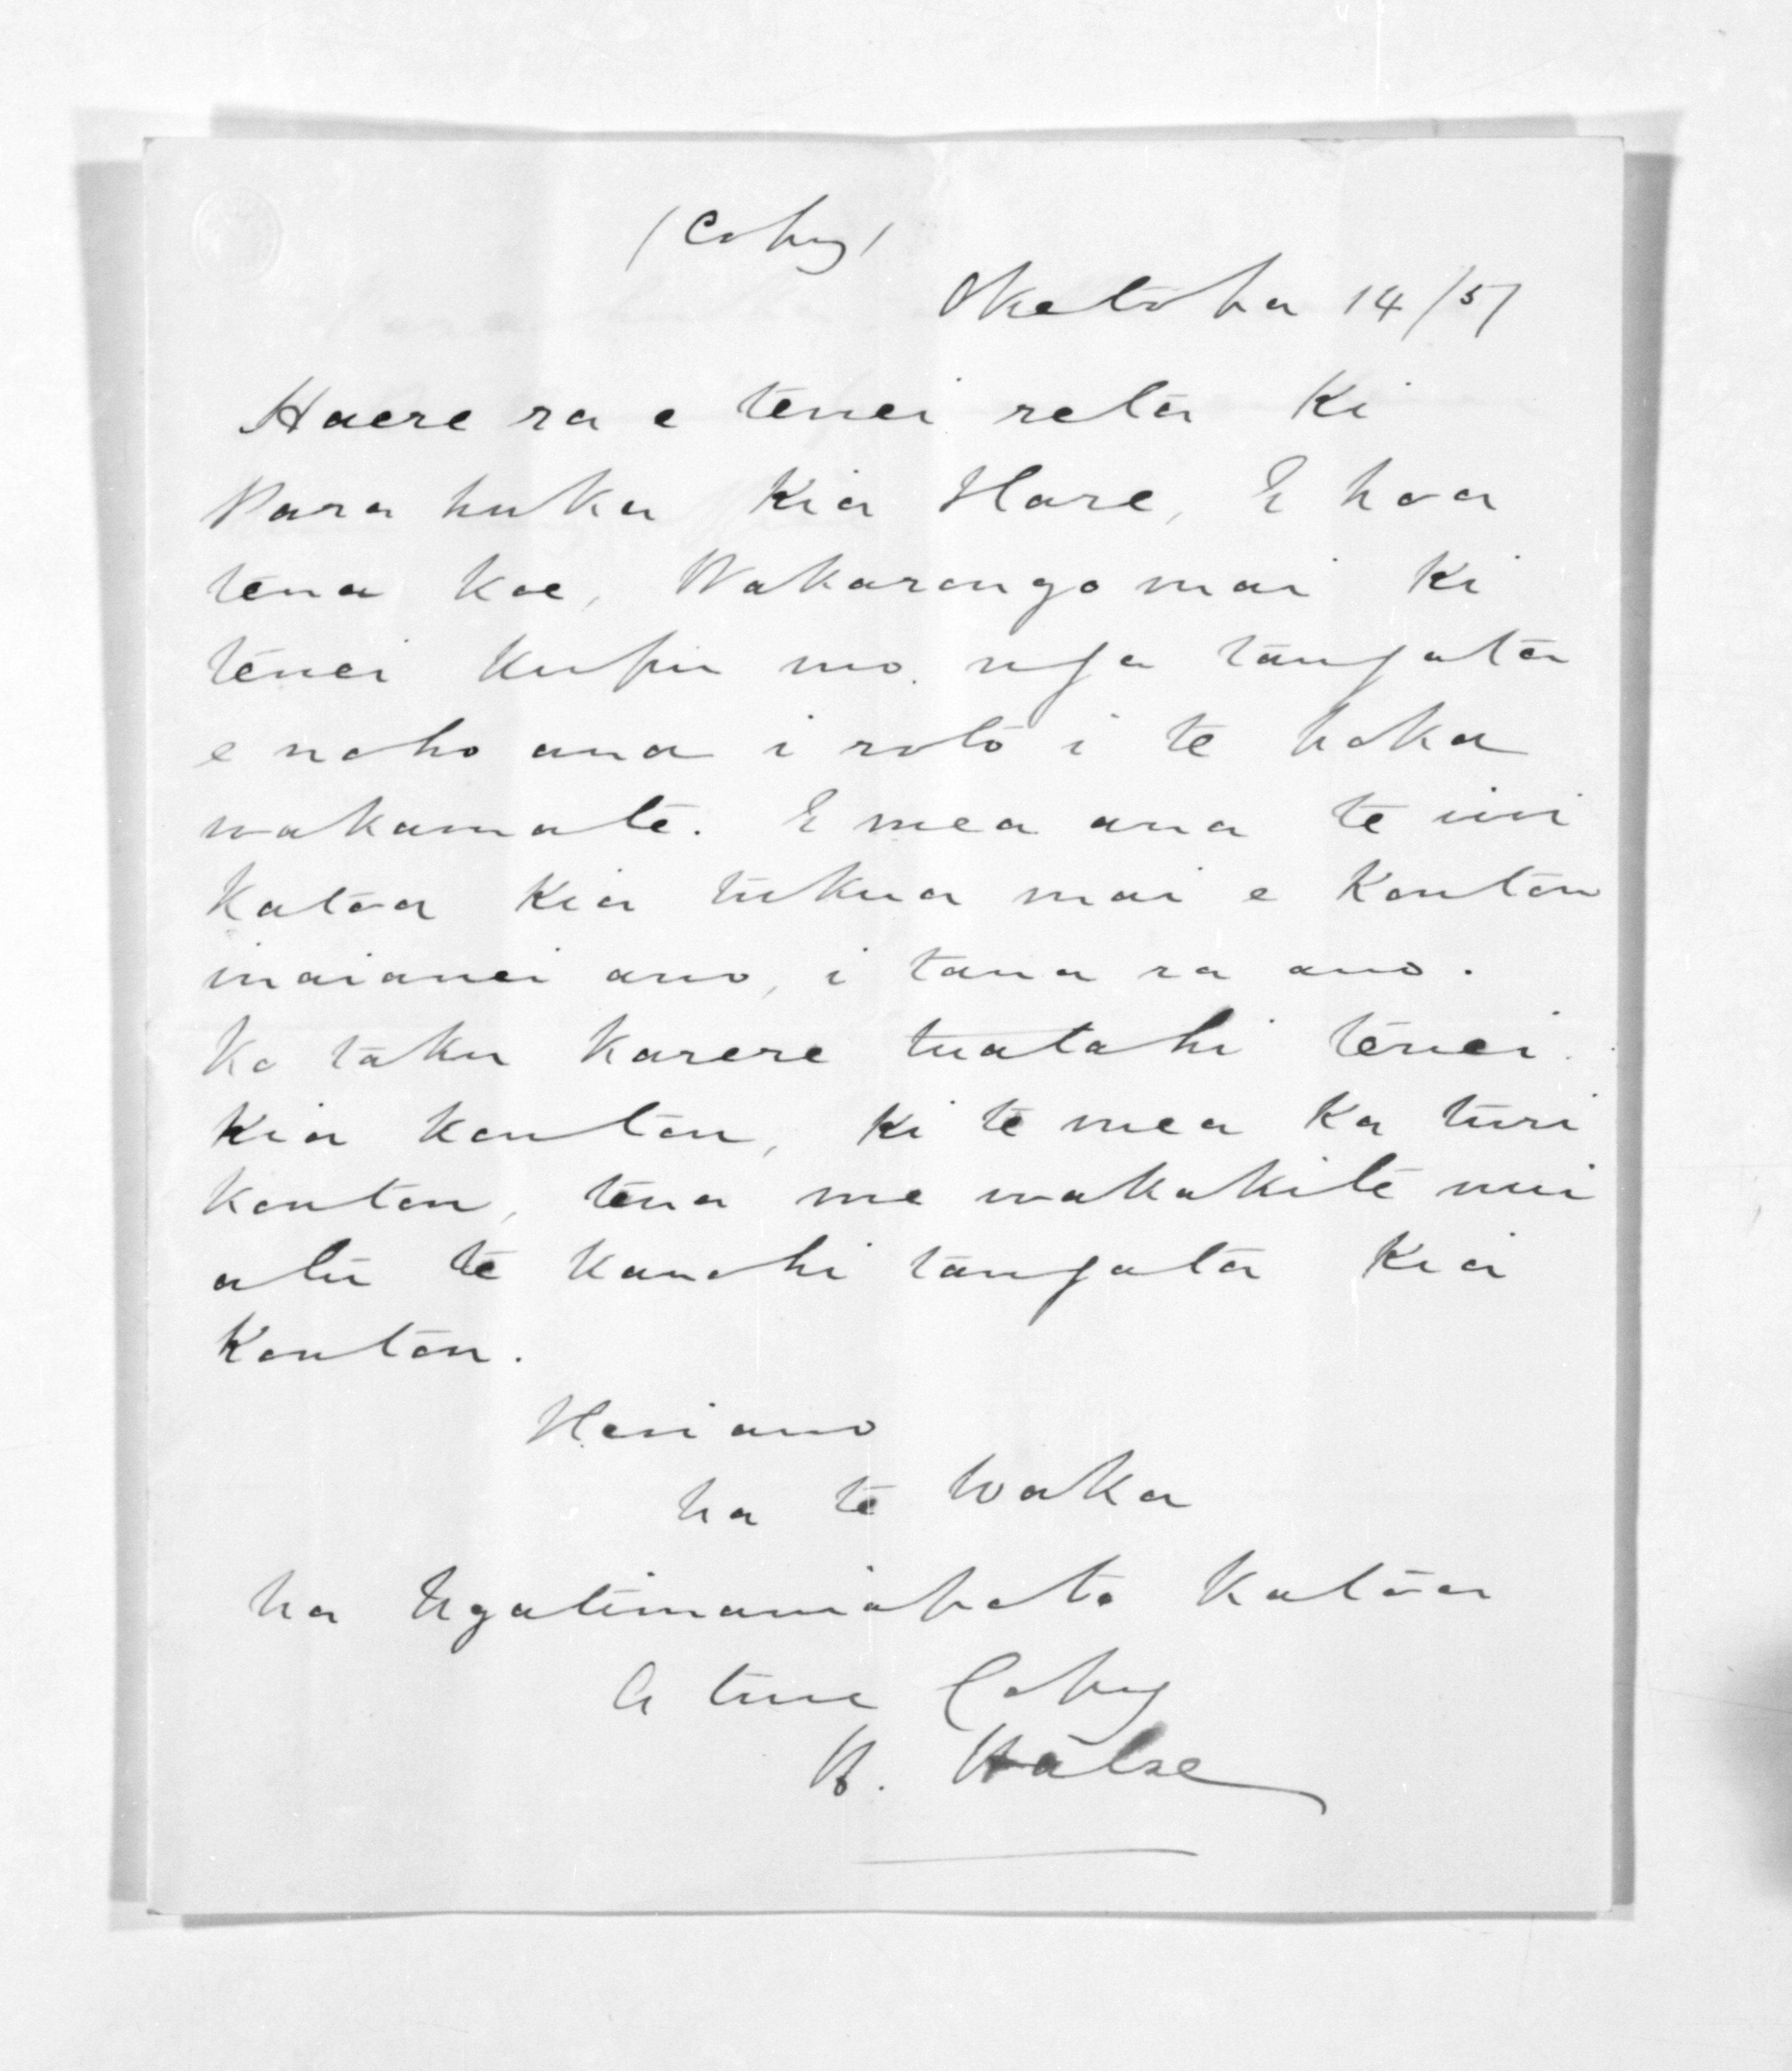 (Copy)
Oketopa 14/57
Haere ra e tenei reta ki
Para huka kia Hare, E hoa
tena koe, Wakarongo mai ki
tenei kupu mo nga tangata
e noho ana i roto i te hoka
wakamate. E mea ana te iwi
katoa kia tukua mai e Koutou
inaianei ano, i tana ra ano.
Ko taku karere tuatahi tenei
kia koutou, ki te mea ka turi
koutou, tena me wakakite mui
atu te kanohi tangata kia
Koutou.
Heni ano
na te Waka
na Ngatimaniapoto katoa
A true Copy
H. Halse